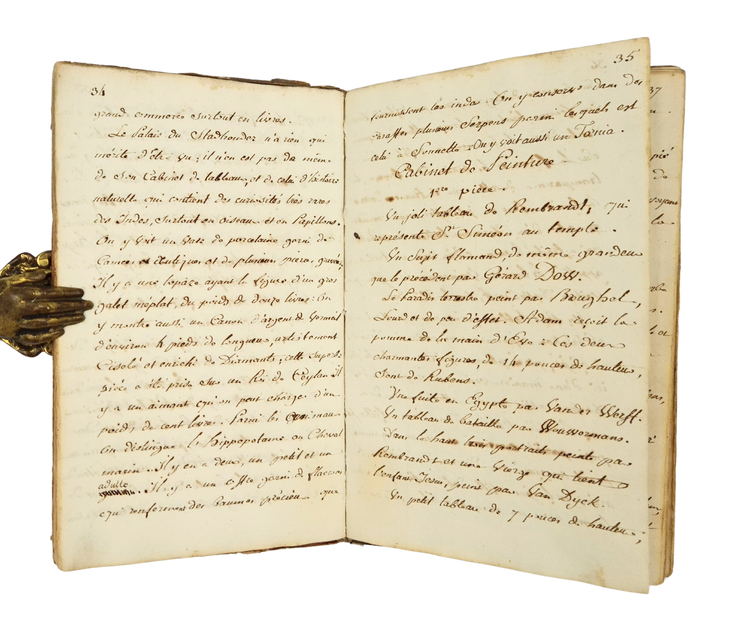 34
grand commerce surtout en livres.
Le Palais du Stadhouder n'a rien qui
mérite d'être vu; il n'en est pas de meme
de Son Cabinet de tableau, et de celui d'histoire
naturelle qui contient des curiosités très rares
des Indes, Surtout en oiseaux et en Papillons.
On y voit un Vase de porcelaine garni de
Camees et Antiques et de plusieurs pierres gravées
Il y a une topaze ayant la figure d'un gros
galet méplat, du poids de douze livres. On
y montre aussi un Canon d'argent de Vermeil
d'environ 4 pieds de longueur, artistement
Ciselé et enrichi de Diamants; cette Superbe
pièce a été prise Sur un Roi de Ceylan. Il
y a un aimant qui on peut charger d'un
poids de cent livres. Parmi les animaux
On distingue le hippopotame ou Cheval
marin. Il y en a deux, un petit et un
adulte
. Il y a un coffre garni de flacons
qui renferment des baumes précieux que
35
fournissent les indes. On y conserve dans des
Caraffes plusieurs Serpens parmi lesquels est
celui à Sonnette. On y voit aussi un Tænia.
Cabinet de Peinture
1ere piece.
Un joli tableau de Rembrandt, qui
représente St. Siméon au temple.
Un Sujet flamand de même grandeur
que le précédent par Gérard Dow.
Le Paradis terrestre peint par Breughel,
Lourd et de peu d'effet. Adam reçoit la
pomme de la main d'Eve: Ces deux
charmantes figures, de 14 pouces de hauteur,
Sont de Rubens.
Une fuite en Egypte par Van der Werff.
Un tableau de bataille par Wouwermans.
Dans le haut trois portraits peints par
Rembrandt et une Vierge qui tient
l'enfant Jesus, peint par Van Dyck.
Un petit tableau de 7 pouces de hauteur,
37